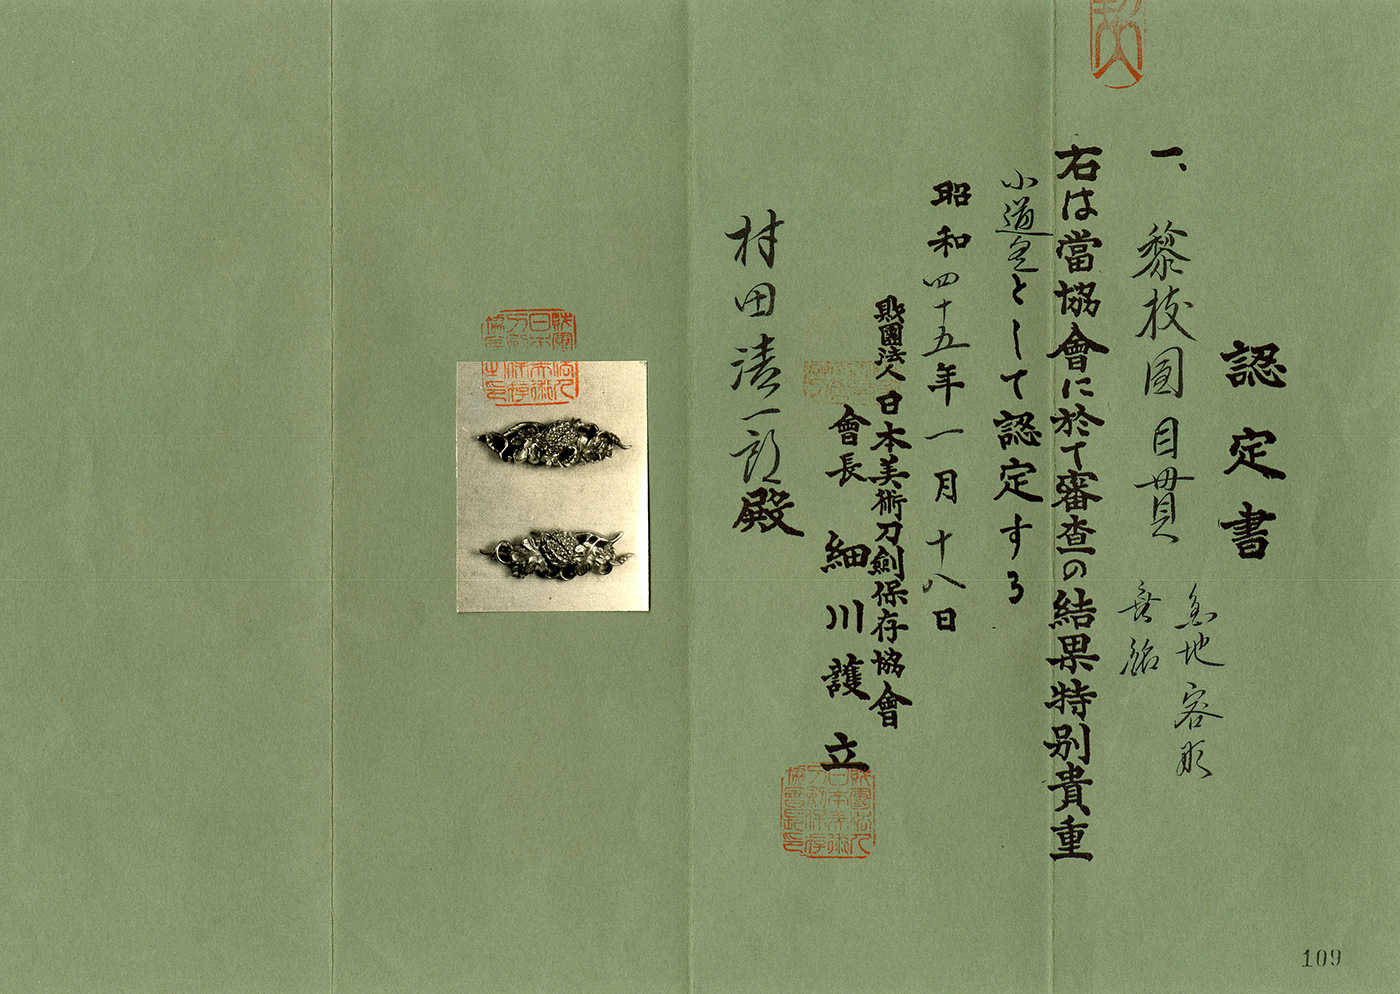 認定書
一、藜枝圖目貫
金地 容彫
無銘
右は當協會に於て審査の結果特別貴重
小道具として認定する
昭和四十五年一月十八日
財團法人日本美術刀劍保存協會
會長 細川護立
村田清一郎殿
109